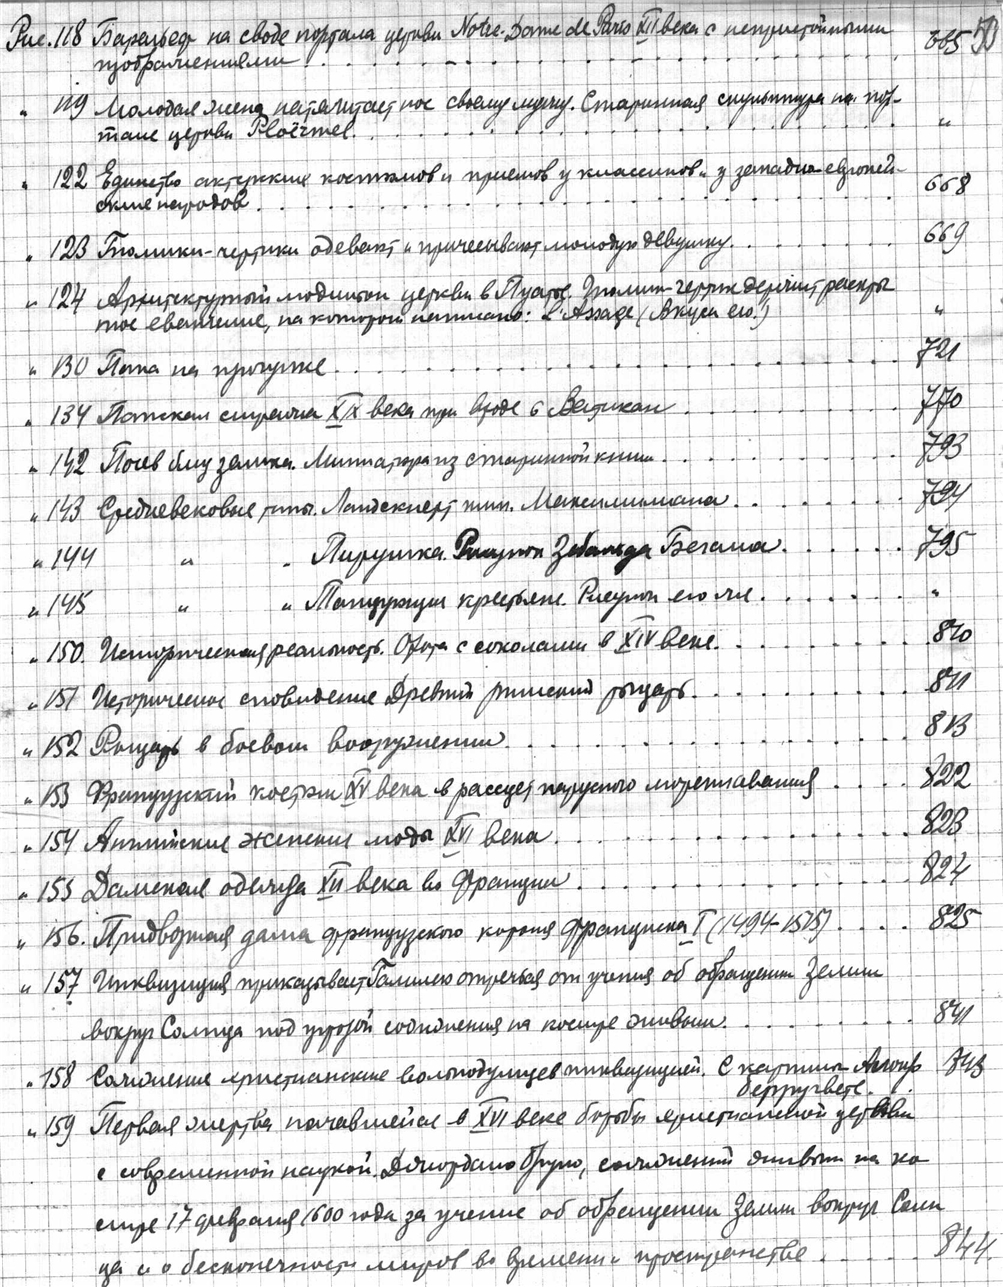 Рис. 118 Барельеф на своде портала церкви Notre-Dame de Paris XII века с непристойными 665 50
изображениями
" 119 Молодая жена натягивает нос своему мужу. Старинная скульптура на пор-
тале церкви Ploërmel. "
" 122 Единство актерских костюмов и приемов у классиков и у западно-европей-
ских народов 668
" 123 Гномики-чертики одевают и причесывают молодую девушку 669
" 124 Архитектурный модильон церкви в Пуатье. Гномик-чертик держит раскры
тое евангелие, на котором написано: (Вкуси его!) "
" 130 Папа на прогулке 721
" 134 Папская стража XIX века при входе в Ватикан 770
" 142 Посев близ замка. Миниатюра из старинной книги 793
" 143 Средневековые типы. Ландскнехт имп. Максимилиана 794
" 144 " " Пирушка. Рисунок Зебальда Бегама 795
" 145 " " Танцующие крестьяне. Рисунок его же "
" 150. Историческая реальность. Охота с соколами в XIV веке. 810
" 151 Историческое сновидение Древний римский рыцарь 811
" 152 Рыцарь в боевом вооружении 813
" 153 Французский костюм XV века в рассвет парусного мореплавания 822
" 154 Английские женские моды XVI века 823
" 155 Дамская одежда XII века во Франции 824
" 156. Придворная дама французского короля Франциска I (1494-1515) 825
" 157 Инквизиция приказывает Галилею отречься от учения об обращении Земли
вокруг Солнца под угрозой сожжения на костре живым 841
" 158 Сожжение христианских вольнодумцев инквизицией. С картины 843
Берругвете.
" 159 Первая жертва начавшейся в XVI веке борьбы христианской церкви
с современной наукой. Джиордано Бруно, сожженный живым на ко
стре 17 февраля 1600 года за учение об обращении Земли вокруг Солн
ца и о бесконечности миров во времени и пространстве 844